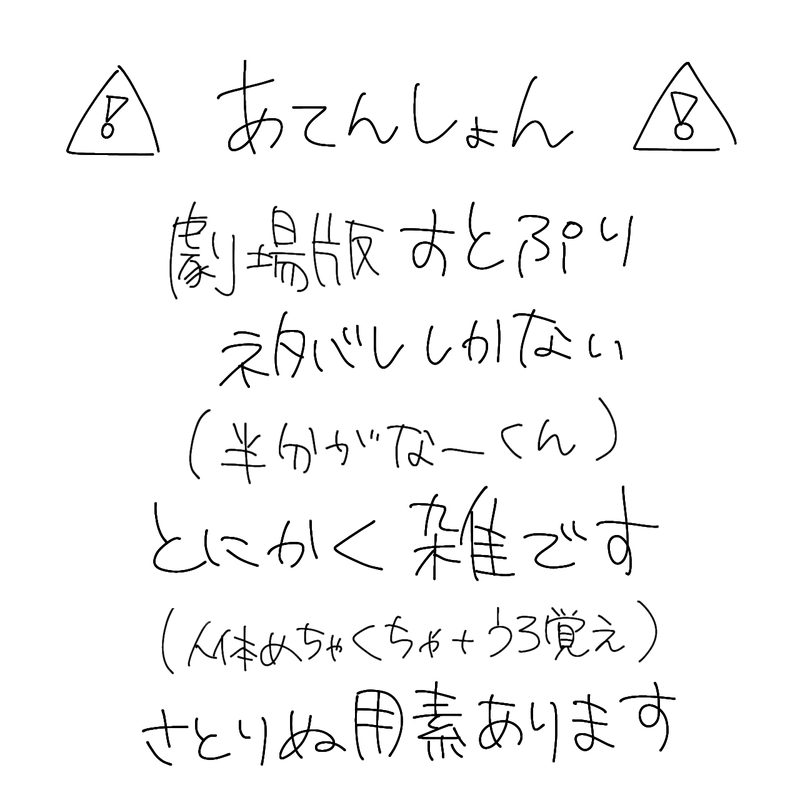 あてんしょん
劇場版すとぷり
ネタバレしかない
(半分がなーくん)
とにかく雑です
(人体めちゃくちゃ+うろ覚え)
さとりぬ用素あります